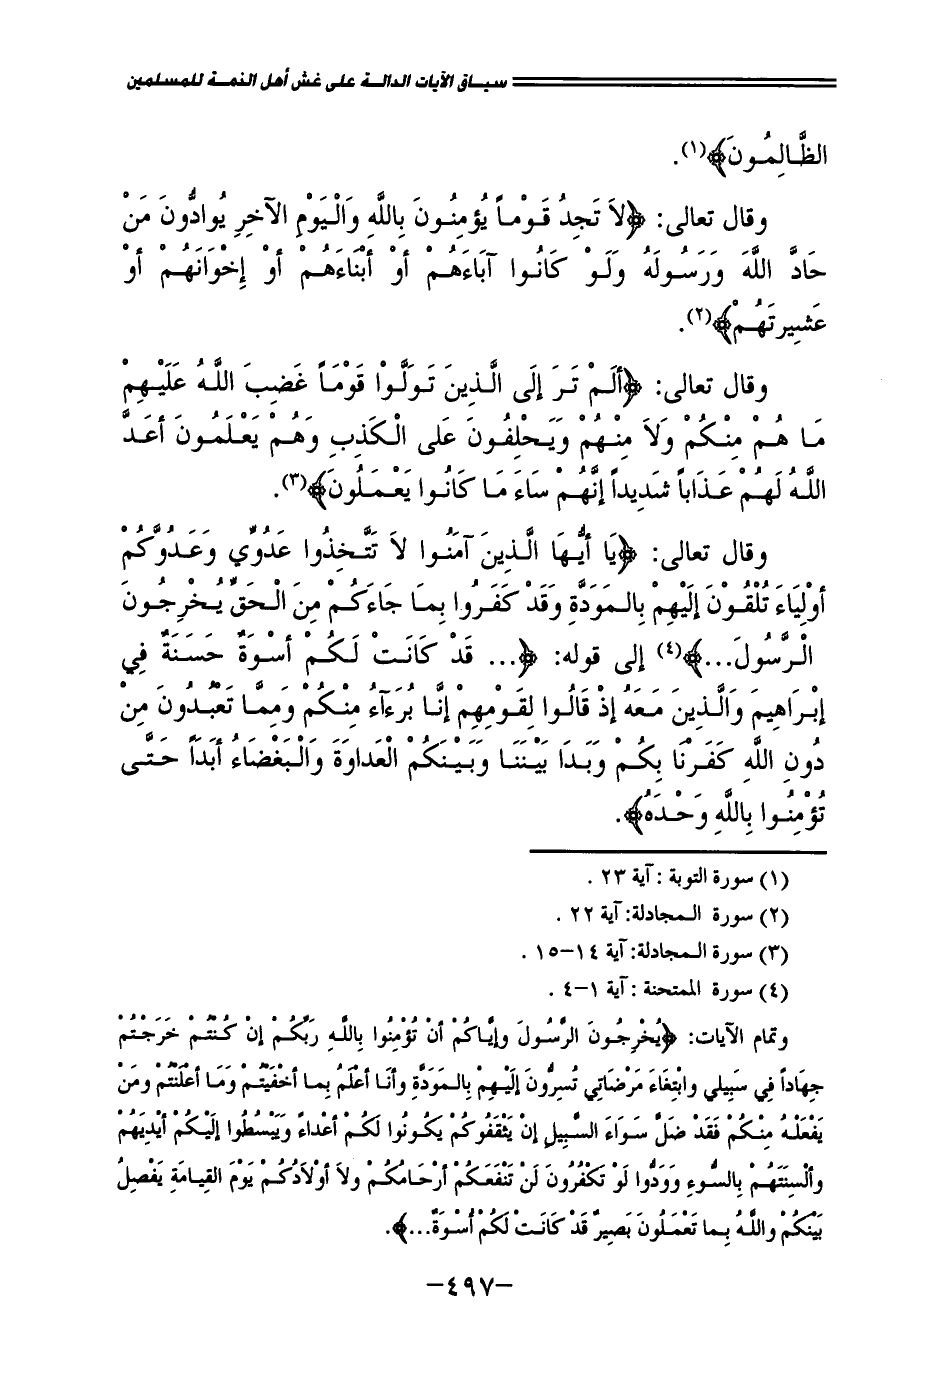 سياق الآيات الدالة على غش أهل الذمة للمسلمين
الظَّالِمُونَ﴾(١).
وقال تعالى: ﴿لاَ تَجِدُ قَوْماً يُؤْمِنُونَ بِاللَّهِ وَالْيَوْمِ الآخِرِ يُوادُّونَ مَنْ
حَادَّ اللَّهَ وَرَسُولَهُ وَلَوْ كَانُوا آبَاءَهُمْ أوْ أبْنَاءَهُمْ أوْ إخْوَانَهُمْ أوْ
عَشِيرتَهُمْ﴾(٢).
وقال تعالى: ﴿ألَمْ تَرَ إلَى الَّذِينَ تَوَلَّوْا قَوْمَاً غَضِبَ اللَّهُ عَلَيْهِمْ
مَا هُمْ مِنْكُمْ وَلاَ مِنْهُمْ وَيَحْلِفُونَ عَلَى الْكَذِبِ وَهُمْ يَعْلَمُونَ أعَدَّ
اللَّهُ لَهُمْ عَذَاباً شَدِيداً إنَّهُمْ سَاءَ مَا كَانُوا يَعْمَلُونَ﴾(٣).
وقال تعالى: ﴿يَا أيُّهَا الَّذِينَ آمَنُوا لاَ تَتَّخِذُوا عَدُوِّي وَعَدُوَّكُمْ
أوْلِيَاءَ تُلْقُونَ إلَيْهِمْ بِالمَوَدَّةِ وَقَدْ كَفَرُوا بِمَا جَاءَكُمْ مِنَ الْحَقِّ يُخْرِجُونَ
الْرَّسُولَ...﴾(٤) إلى قوله: ﴿... قَدْ كَانَتْ لَكُمْ أسْوَةٌ حَسَنَةٌ فِي
إبْرَاهِيمَ وَالَّذِينَ مَعَهُ إذْ قَالُوا لِقَوْمِهِمْ إنَّا بُرَءَآءُ مِنْكُمْ وَمِمَّا تَعْبُدُونَ مِنْ
دُونِ اللَّهِ كَفَرْنَا بِكُمْ وَبَدَا بَيْنَنَا وَبَيْنَكُمْ الْعَداوَةَ وَالْبَغْضَاءُ أبَدَاً حَتَّى
تُؤْمِنُوا بِاللَّهِ وَحْدَهُ﴾.
(١) سورة التوبة : آية ٢٣ .
(٢) سورة المجادلة: آية ٢٢ .
(٣) سورة المجادلة: آية ١٤–١٥ .
(٤) سورة الممتحنة : آية ١–٤ .
وتمام الآيات: ﴿يُخْرِجُونَ الرَّسُولَ وإيَّاكُمْ أنْ تُؤْمِنُوا بِاللَّهِ رَبِّكُمْ إنْ كُنْتُمْ خَرَجْتُمْ
جِهَاداً فِي سَبِيلِي وابْتِغَاءَ مَرْضَاتِي تُسِرُّونَ إلَيْهِمْ بِالمَوَدَّةِ وأنَا أعْلَمُ بِما أخْفَيْتُمْ وَمَا أعْلَنْتُمْ ومَنْ
يَفْعَلْهُ مِنْكُمْ فَقَدْ ضَلَّ سَوَاءَ السَّبِيلِ إنْ يَثْقَفُوكُمْ يَكُونُوا لَكُمْ أعْداءً ويَبْسُطُوا إلَيْكُمْ أيْدِيَهُمْ
وألْسِنَتَهُمْ بِالسُّوءِ وَوَدُّوا لَوْ تَكْفُرُونَ لَنْ تَنْفَعَكُمْ أرْحَامُكُمْ ولاَ أوْلاَدُكُمْ يَوْمَ القِيامَةِ يَفْصِلُ
بَيْنَكُمْ واللَّهُ بِما تَعْمَلُونَ بَصِيرٌ قَدْ كَانَتْ لَكُمْ أُسْوَةٌ...﴾.
–٤٩٧–